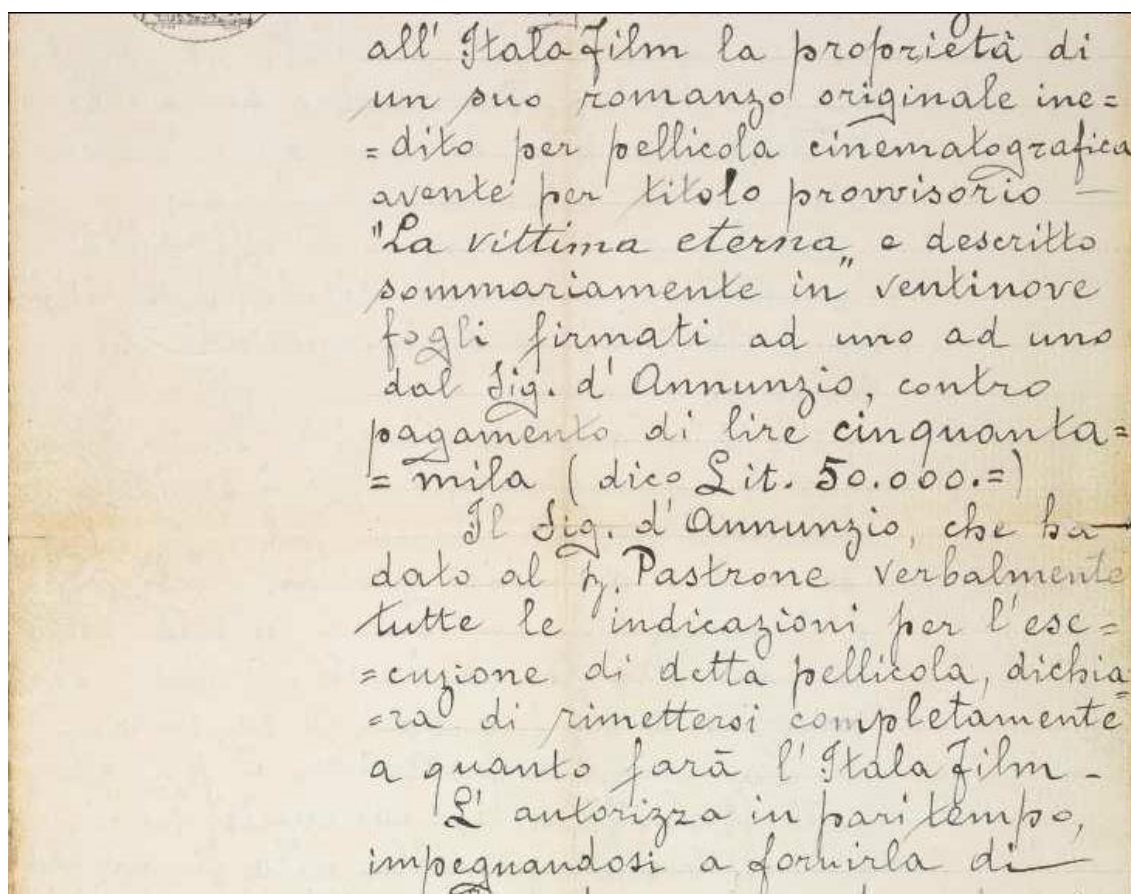 all' Itala Film la proprietà di
un suo romanzo originale ine=
=dito per pellicola cinematografica
avente per titolo provvisorio —
"La vittima eterna„ e descritto
sommariamente in ventinove
fogli firmati ad uno ad uno
dal Sig. d'Annunzio, contro
pagamento di lire cinquanta=
=mila (dico Lit. 50.000.=)
Il Sig. d'Annunzio, che ha—
dato al Pastrone verbalmente
tutte le indicazioni per l'ese=
=cuzione di detta pellicola, dichia=
=ra di rimettersi completamente
a quanto farà l'Itala Film -
L'autorizza in pari tempo,
impegnandosi a fornirla di—